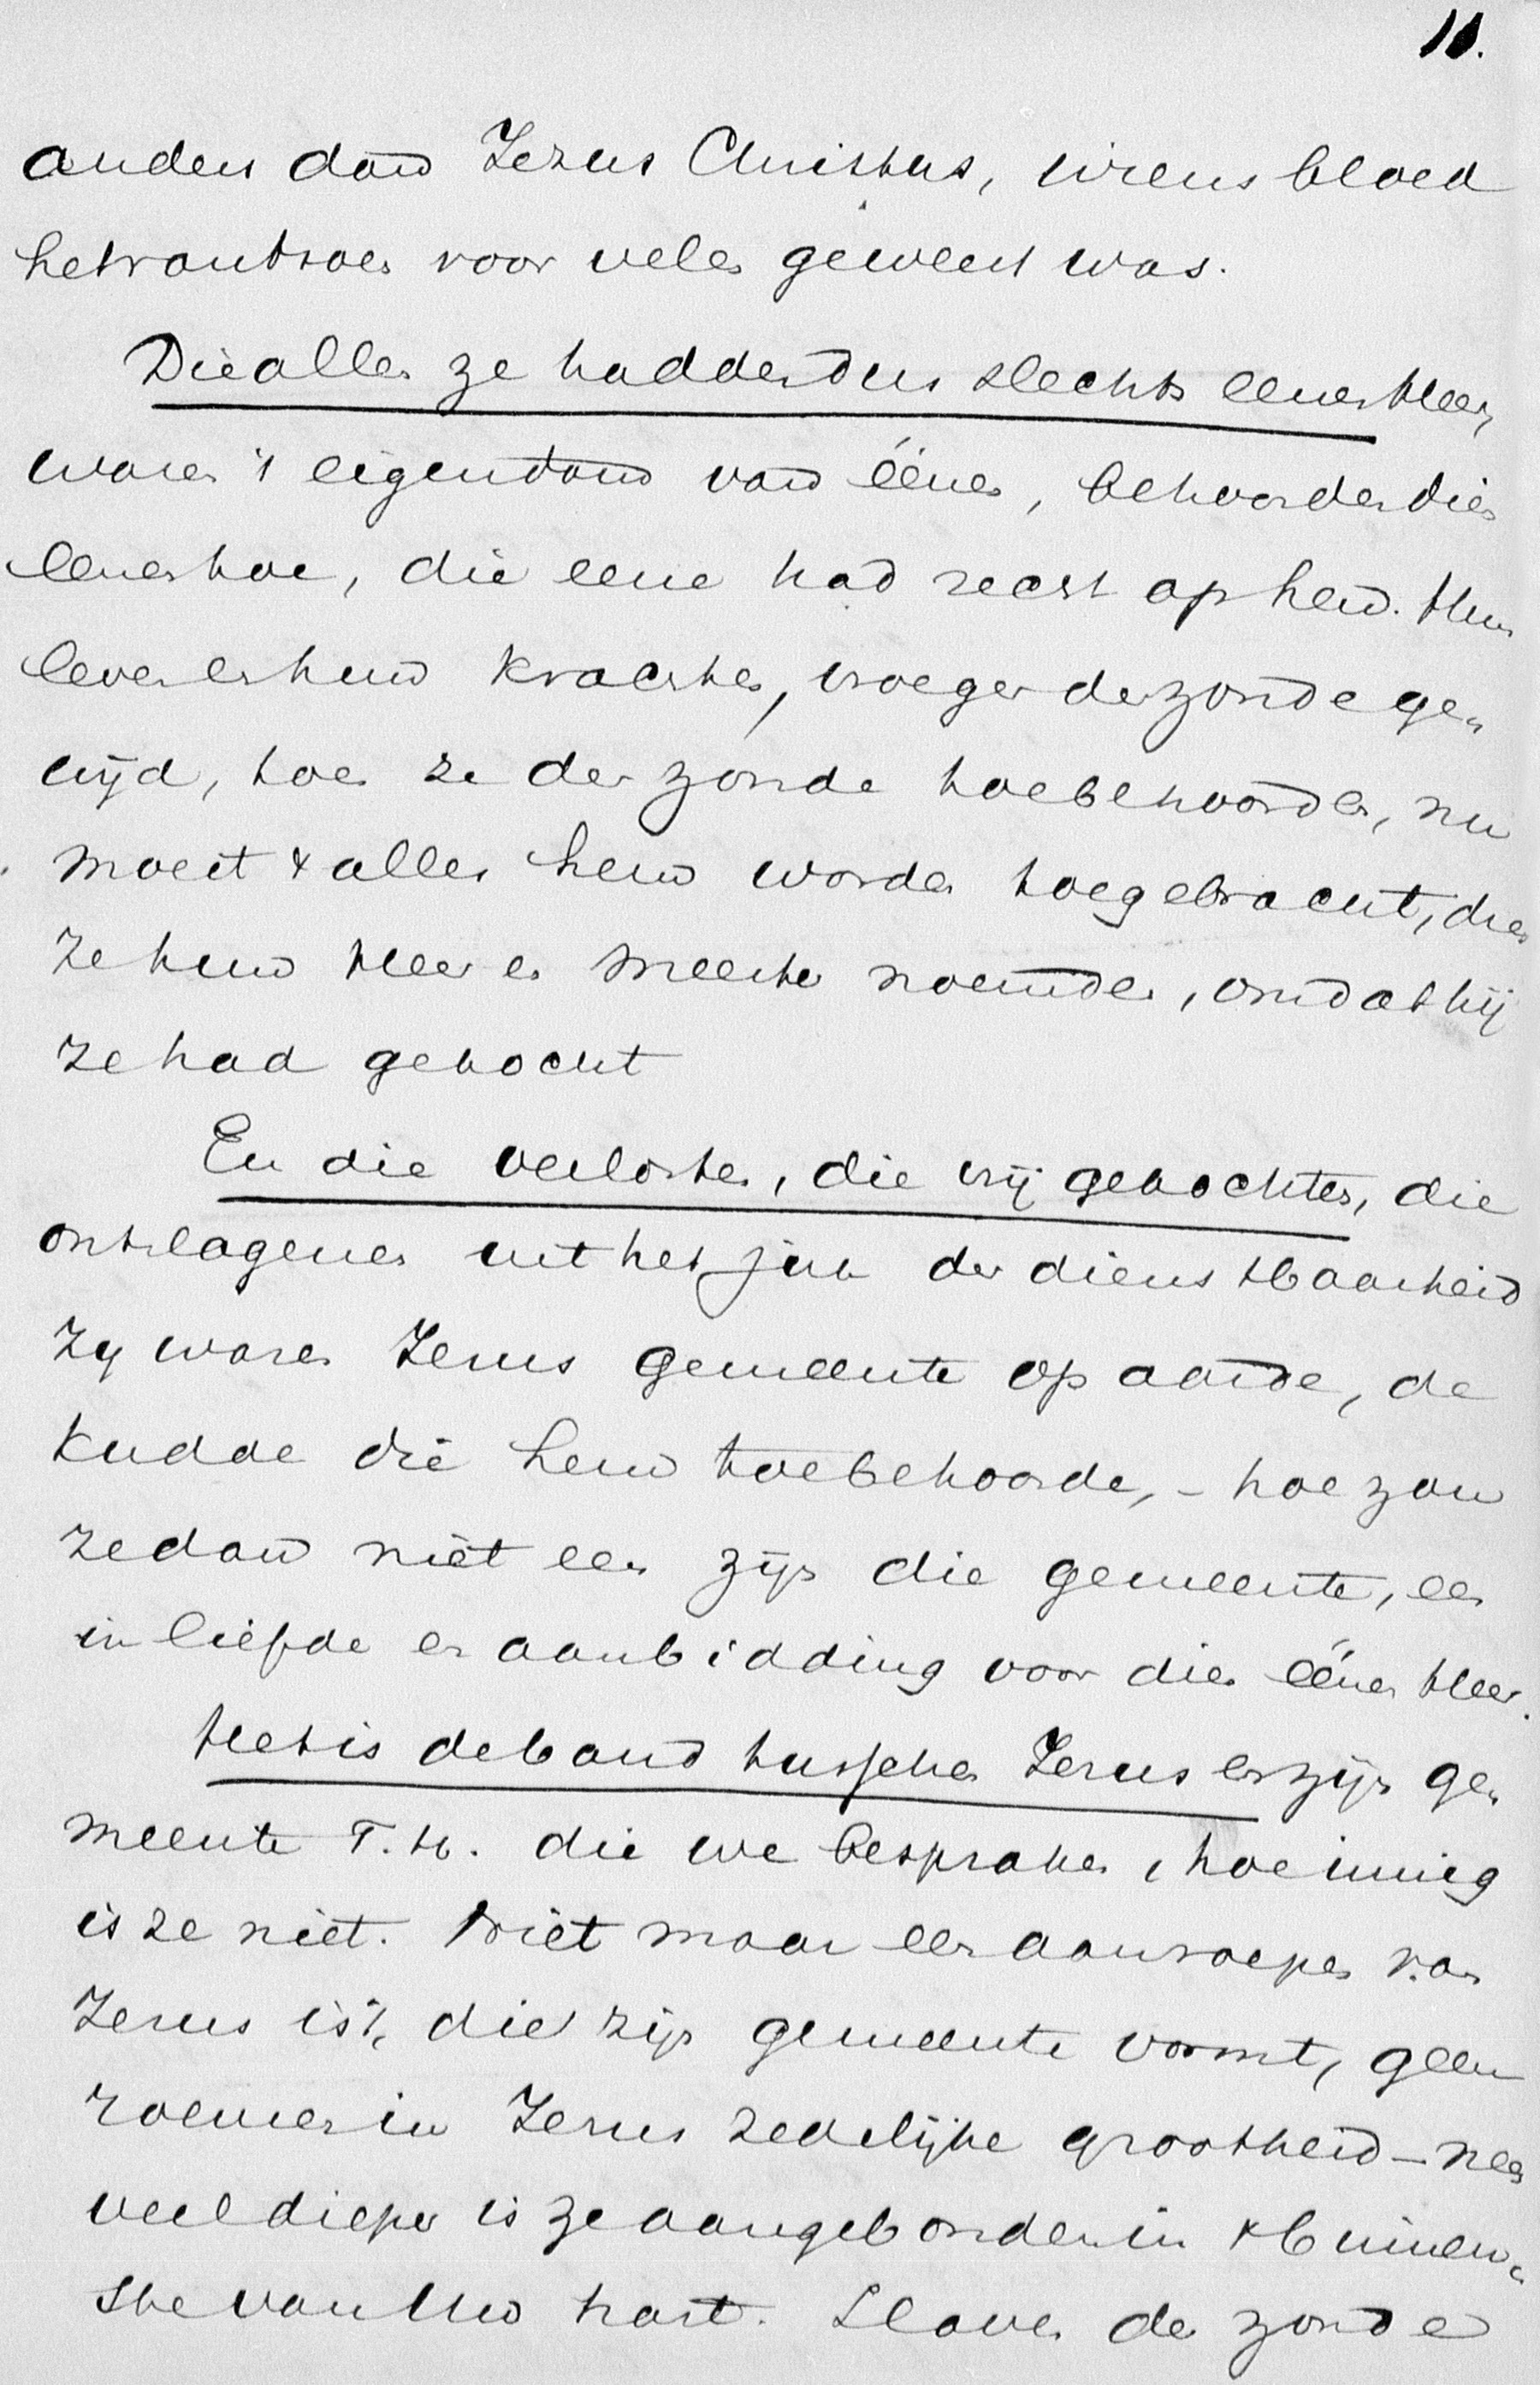 10.
anders dan Jezus Christus, wiens bloed
het rantsoen voor velen geweest was.
Die allen ze hadden dus slechts eenen Heer,
waren 't eigendom van éénen, behoorden dien
eenen toe, die eene had recht op hen. Hun
leven en hun krachten, vroeger der zonde ge„
wijd, toen ze der zonde toebehoorden, nu
moest 't alles hem worden toegebracht, dien
ze hun Heer en Meester noemden, omdat hij
ze had gekocht
En die verlosten, die vrijgekochten, die
ontslagenen uit het juk der dienstbaarheid
zij waren Jezus gemeente op aarde, de
kudde die hem toebehoorde, – hoe zou
ze dan niet een zijn die gemeente, een
in liefde en aanbidding voor dien éénen Heer.
Het is de band tusschen Jezus en zijn ge„
meente T.H. die we bespraken, hoe innig
is ze niet. Niet maar een aanroepen van
Jezus is 't, die zijn gemeente vormt, geen
roemen in Jezus zedelijke grootheid – neen
veel dieper is ze aangebonden in 't binnen„
ste van Uw hart. Slaven der zonde